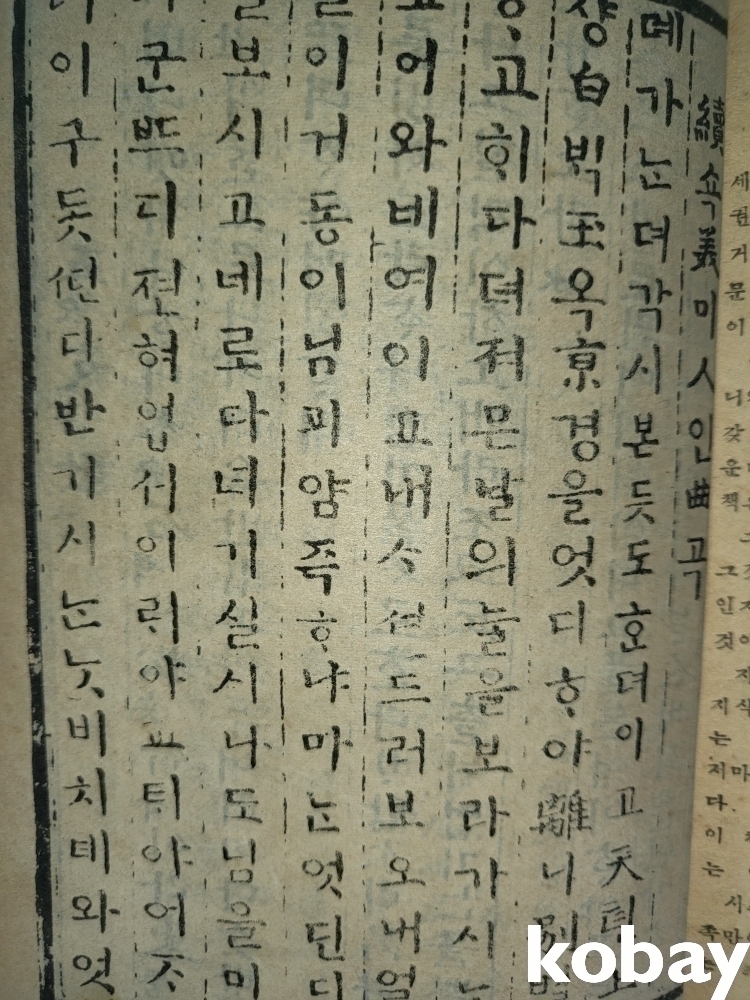 續쇽美미人인曲곡
뎨가ᄂᆞᆫ뎌각시본듯도ᄒᆞᆫ뎌이고天텬
샹白ᄇᆡᆨ玉옥京경을엇디ᄒᆞ야離니別
고ᄒᆡ다뎌져믄날의눌을보라가시
어와비여이고내ᄉᆞ셜드러보오내얼
이거동이님괴얌즉ᄒᆞ냐마ᄂᆞᆫ엇딘디
보시고네로다녀기실시나도님을미
군ᄠᅳ디젼혀업서이ᄅᆡ야교ᄐᆡ야어ᄌᆞ
이구돗ᄯᅥᆫ디반기시ᄂᆞᆫᄂᆞᆺ비치녜와엇
kobay